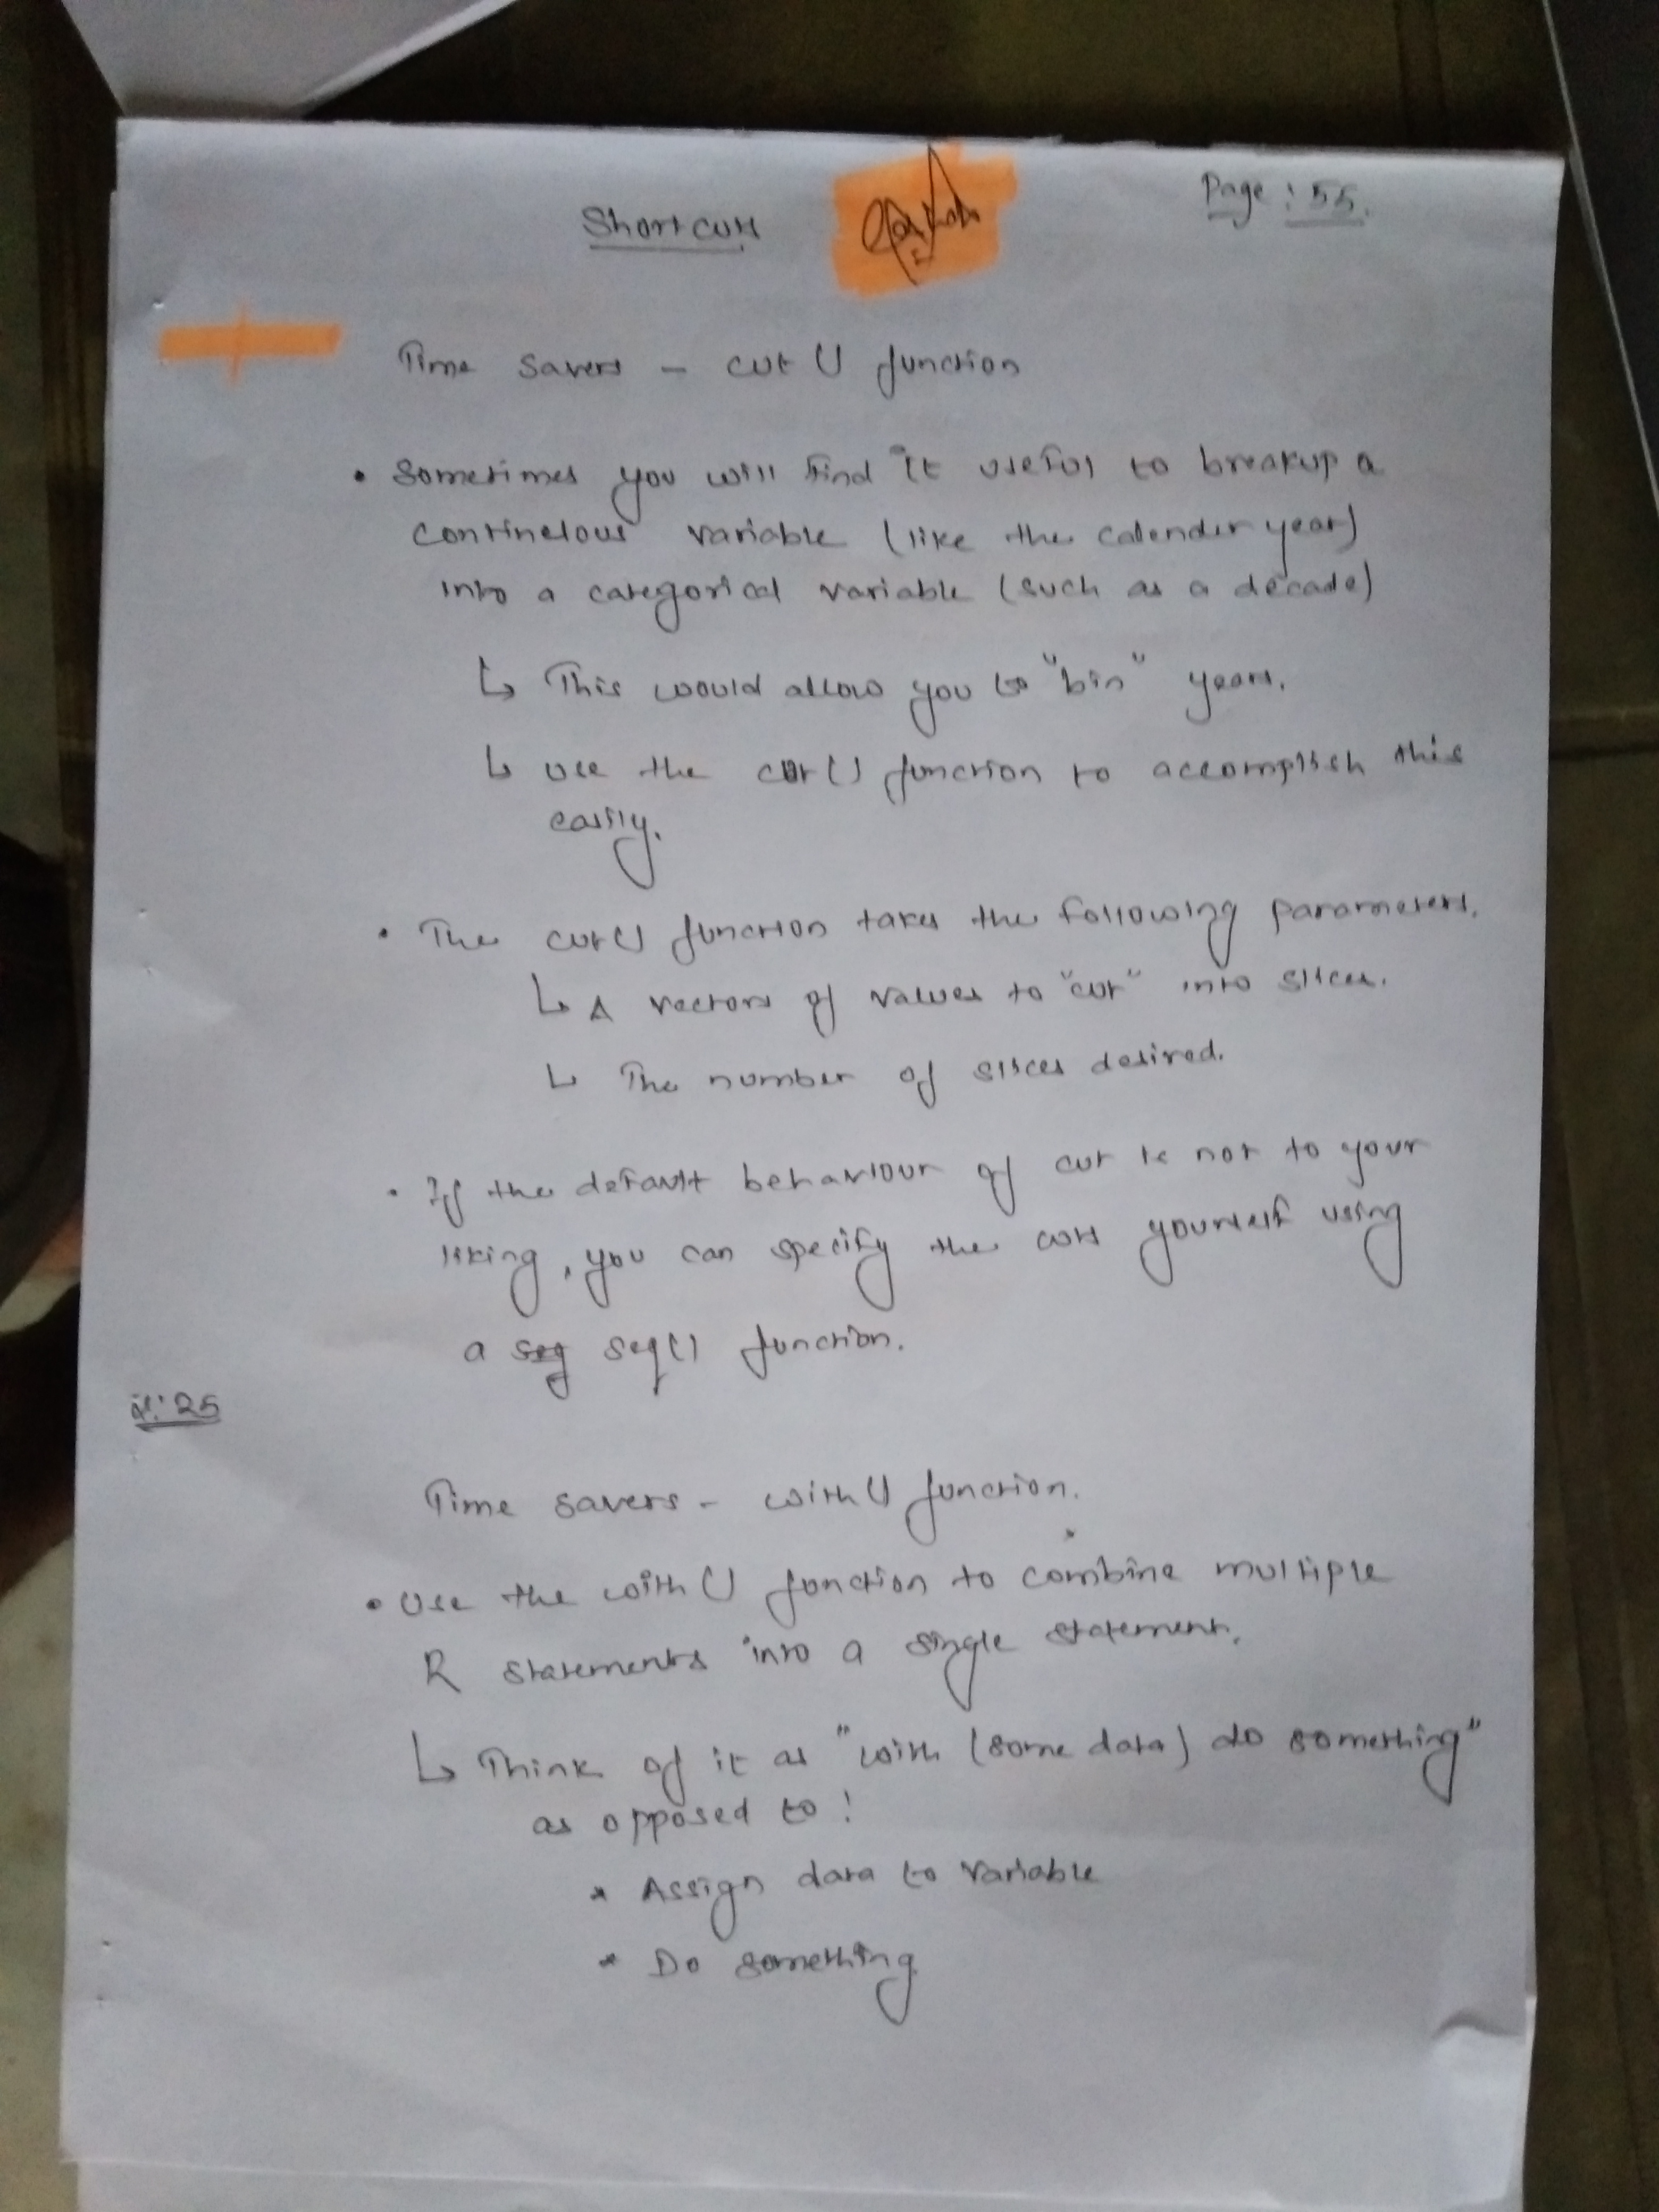 Shortcuts
Page : 55.
Time Savers - cut () function
• Sometimes you will find it useful to breakup a
continelous variable (like the calender year)
into a categorical variable (such as a decade)
↳ This would allow you to "bin" years.
↳ Use the cut () function to accomplish this
easily.
• The cut () function takes the following parameters.
↳ A vectors of values to "cut" into slices.
↳ The number of slices desired.
• If the default behaviour of cut is not to your
liking, you can specify the cuts yourself using
a seq() function.
Time savers - with () function.
• Use the with () function to combine multiple
R statements into a single statement.
↳ Think of it as "with (some data) do something"
as opposed to :
* Assign data to variable
* Do something